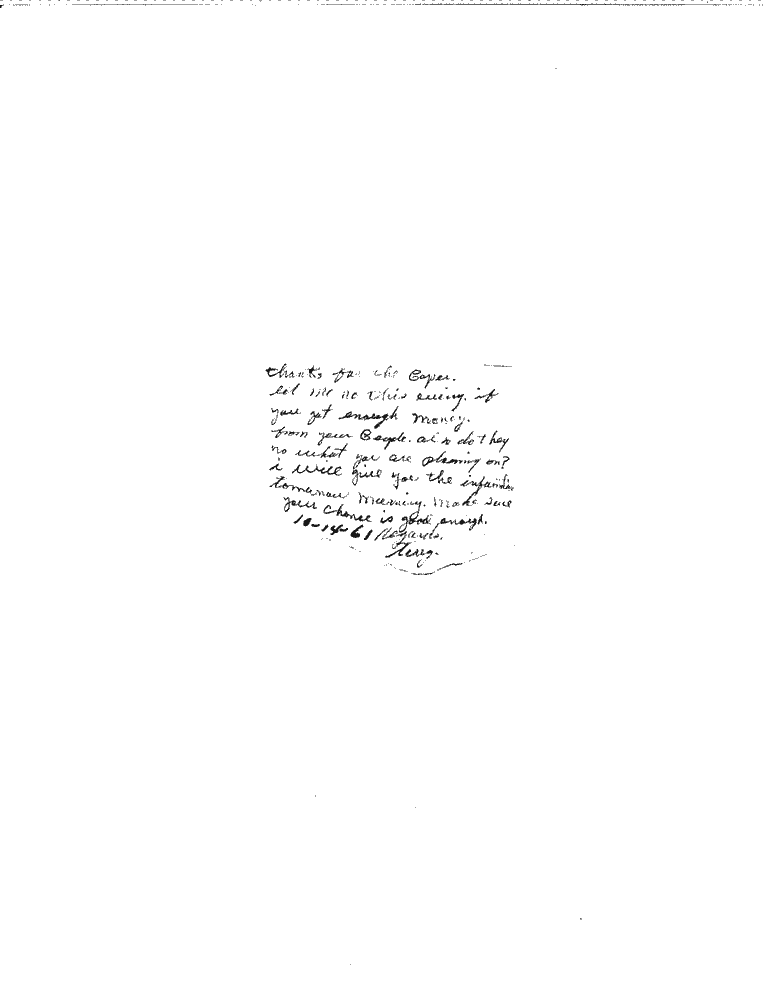 thanks for the Paper.
let me no this evening. if
you got enough money.
from your People. also do they
no what you are planning on?
i will give you the information
tomarrow morning. Make sure
your chance is good enough.
10-14-61 Regards.